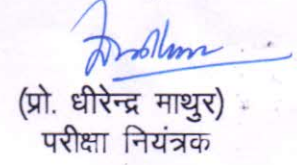 (प्रो. धीरेन्द्र माथुर)
परीक्षा नियंत्रक